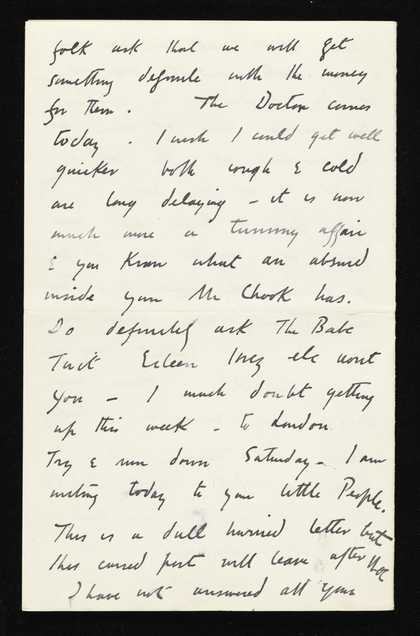 folk ask that we will get
something definite with the money
for them. The Doctor comes
today. I wish I could get well
quicker both cough & cold
are long delaying – it is now
much more a tummy affair
& you know what an absurd
inside your Mr Chook has.
Do definitely ask The Babe
Tuck Eileen Inez etc wont
you – I much doubt getting
up this week – to London
Try & run down Saturday – I am
writing today to your little People.
This is a dull hurried letter but
this cursed post will leave after
I have not answered all your